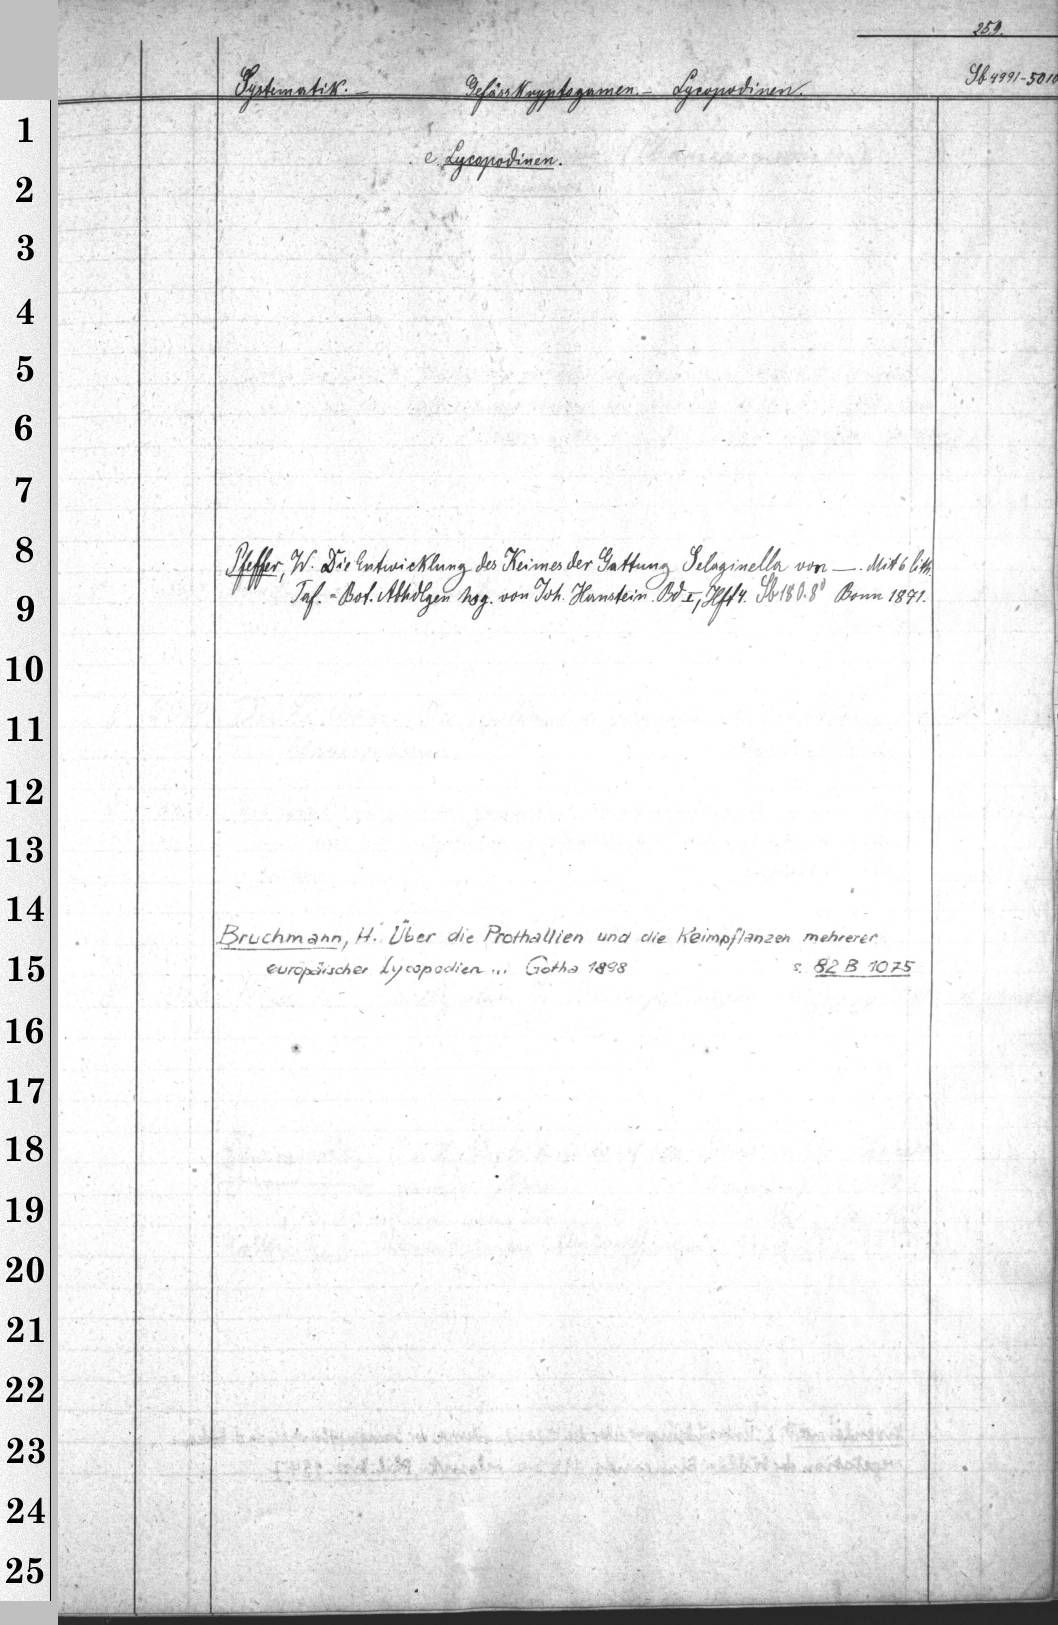 259.
Systematik. – Gefässkryptogamen. – Lycopodinen.
Sb 4991-5010
e. Lycopodinen.
1
2
3
4
5
6
7
8
Pfeffer, W. Die Entwicklung des Keimes der Gattung Selaginella von —. Mit 6 lith.
9
Taf. = Bot. Abhdlgen hsg. von Joh. Hanstein. Bd I, Hft 4. Sb 180.8⁰ Bonn 1871.
10
11
12
13
14
Bruchmann, H. Über die Prothallien und die Keimpflanzen mehrerer
15
europäischer Lycopodien ... Gotha 1898 s. 82 B 1075
16
17
18
19
20
21
22
23
24
25